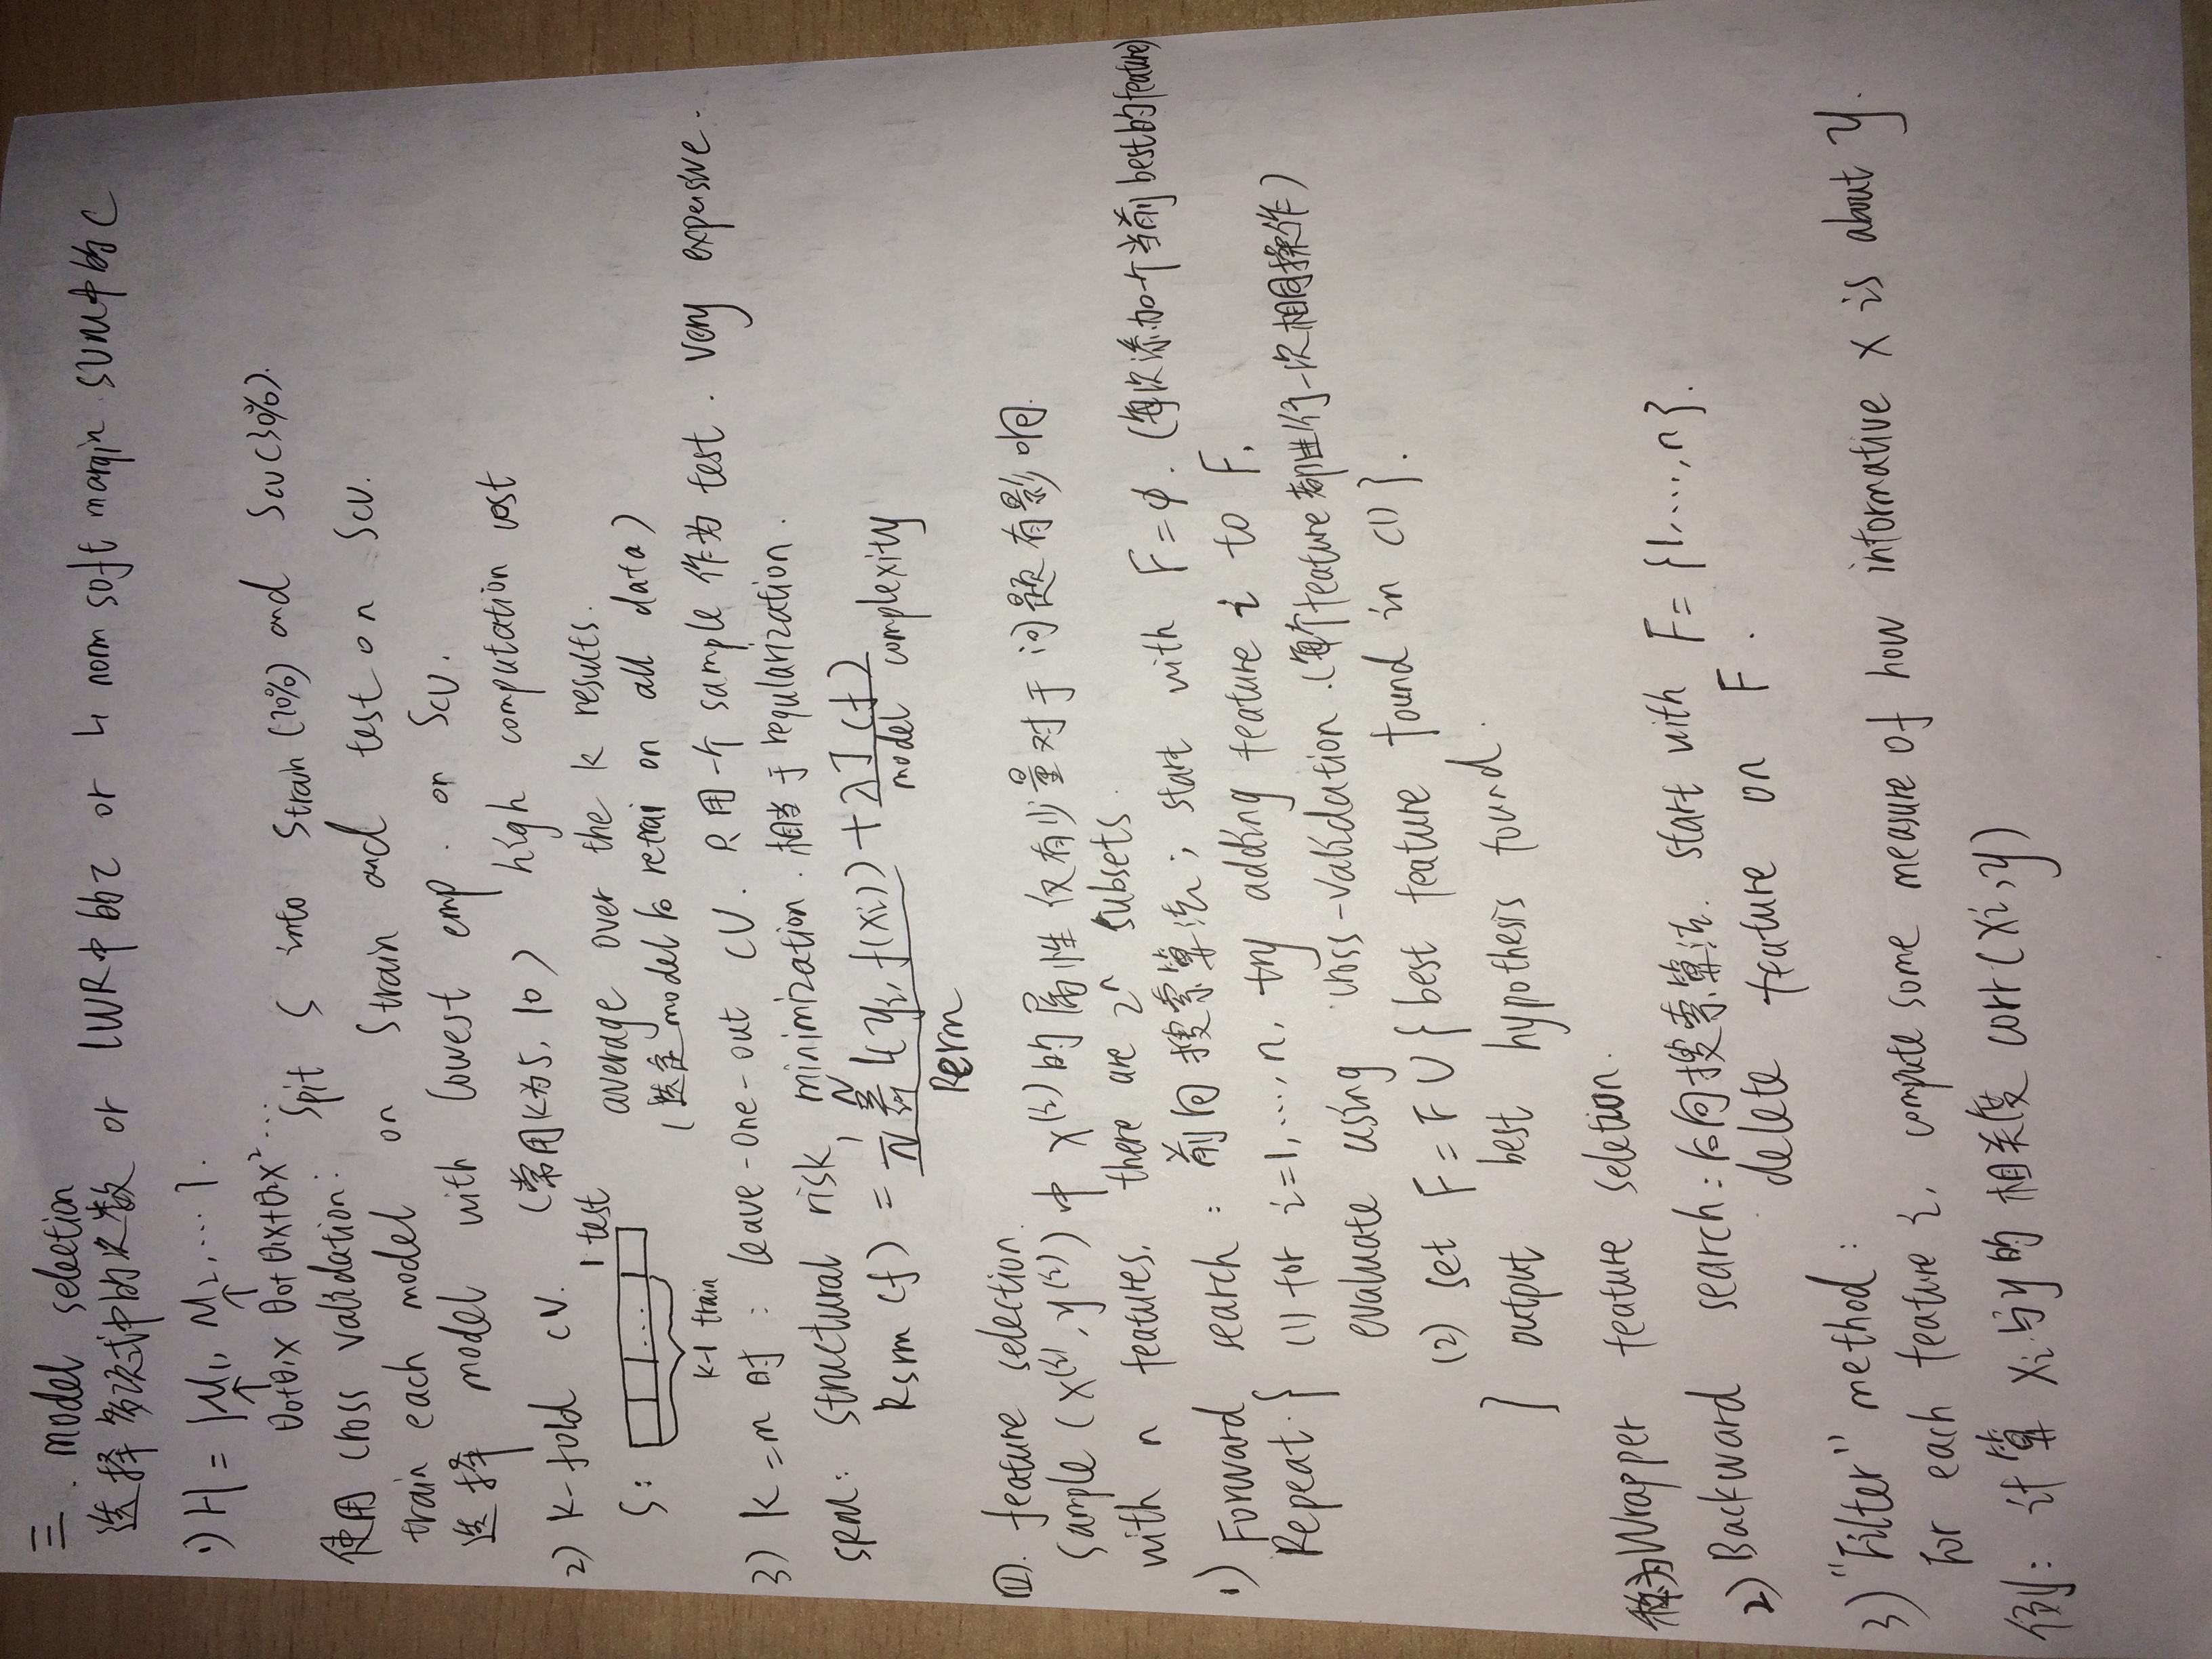 三. model selection
选择多项式中的次数 or LWR中的τ or L1 norm soft margin SVM中的C
1) H = {M1, M2, ... }.
↑ ↑
θ0+θ1x θ0+θ1x+θ2x² ...
使用 cross validation: Spit S into Strain (70%) and Scv (30%).
train each model on Strain and test on Scv.
选择 model with lowest emp. on Scv.
2) k-fold CV. (常用k为5, 10) high computation cost
1 test
S: ... average over the k results.
(选定model后 retrai on all data)
k-1 train
3) k=m 时: leave-one-out CV. 只用一个 sample 作为 test. very expensive.
SRM: structural risk minimization. 相当于 regularization.
Rsrm (f) = 1/N Σ L(yi, f(xi)) + λJ(f)
Rerm model complexity
四. feature selection.
Sample (x⁽ⁱ⁾, y⁽ⁱ⁾) 中 x⁽ⁱ⁾的属性仅有少量对于问题有影响
with n features, there are 2ⁿ subsets.
1) Forward search: 前向搜索算法; start with F=φ. (每次添加一个当前best的feature)
Repeat { (1) for i=1, ..., n, try adding feature i to F,
evaluate using cross-validation. (每个feature都进行一次相同操作)
(2) set F = F ∪ { best feature found in (1) }.
} output best hypothesis found.
称为Wrapper feature seletion.
2) Backward search: 后向搜索算法. start with F = {1, ..., n}.
delete feature on F.
3) "Filter" method:
For each feature i, compute some measure of how informative x is about y.
例: 计算 xi与y的相关度 corr(xi, y)